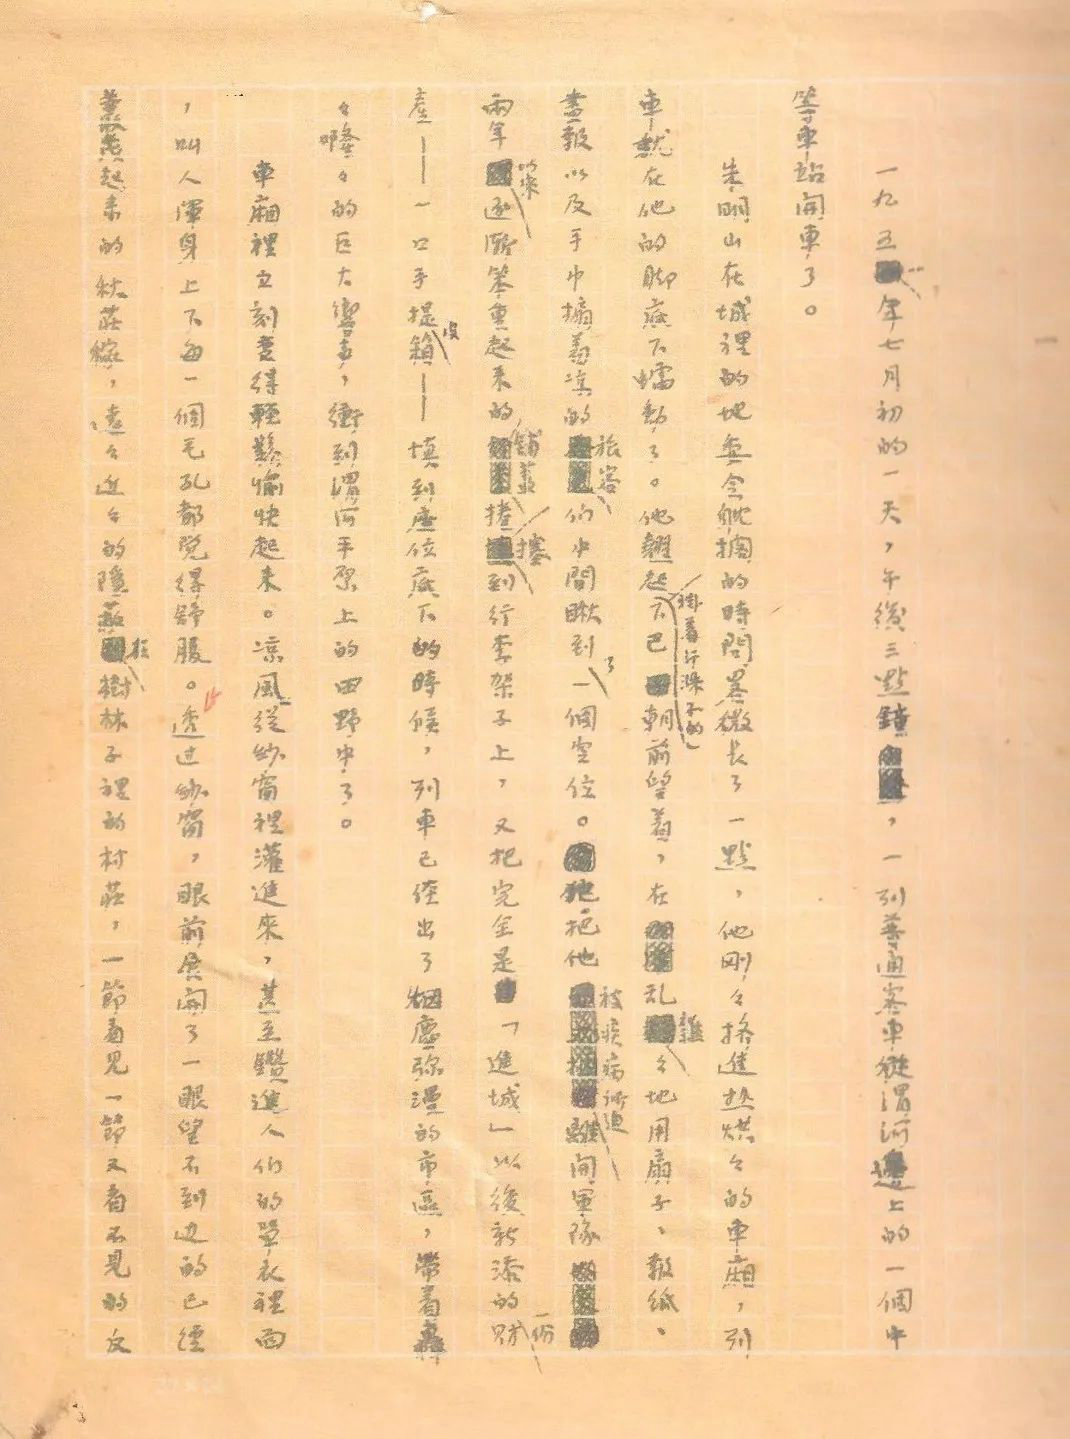 一九五…年七月初的一天，午後三點鐘，一列普通客車從渭河邊上的一個中
等車站開車了。
朱明山在城裡的地委会躭擱的時間畧微長了一點，他剛々擠進热烘々的車廂，列
車就在他的脚底下蠕動了。他翹起掛着汗珠子的下巴朝前望着，在乱雜々地用扇子、報纸、
畫報以及手巾搧着凉的旅客们中間瞅到了一個空位。他把他被疾病所迫離開軍隊
兩年以來逐漸笨重起来的鋪蓋捲擡到行李架子上，又把完全是「進城」以後新添的一份財
產——一口手提皮箱——填到座位底下的時候，列車已經出了烟塵弥漫的市區，帶着轟
々隆々的巨大響声，衝到渭河平原上的田野中了。
車廂裡立刻变得輕鬆愉快起来。凉風從紗窗裡灌進來，甚至鑽進人们的單衣裡面
，叫人渾身上下每一個毛孔都覚得舒服。透过紗窗，眼前展開了一眼望不到边的已經
黄起来的秋莊稼，遠々近々的隱蔽在樹林子裡的村莊，一節看見一節又看不見的